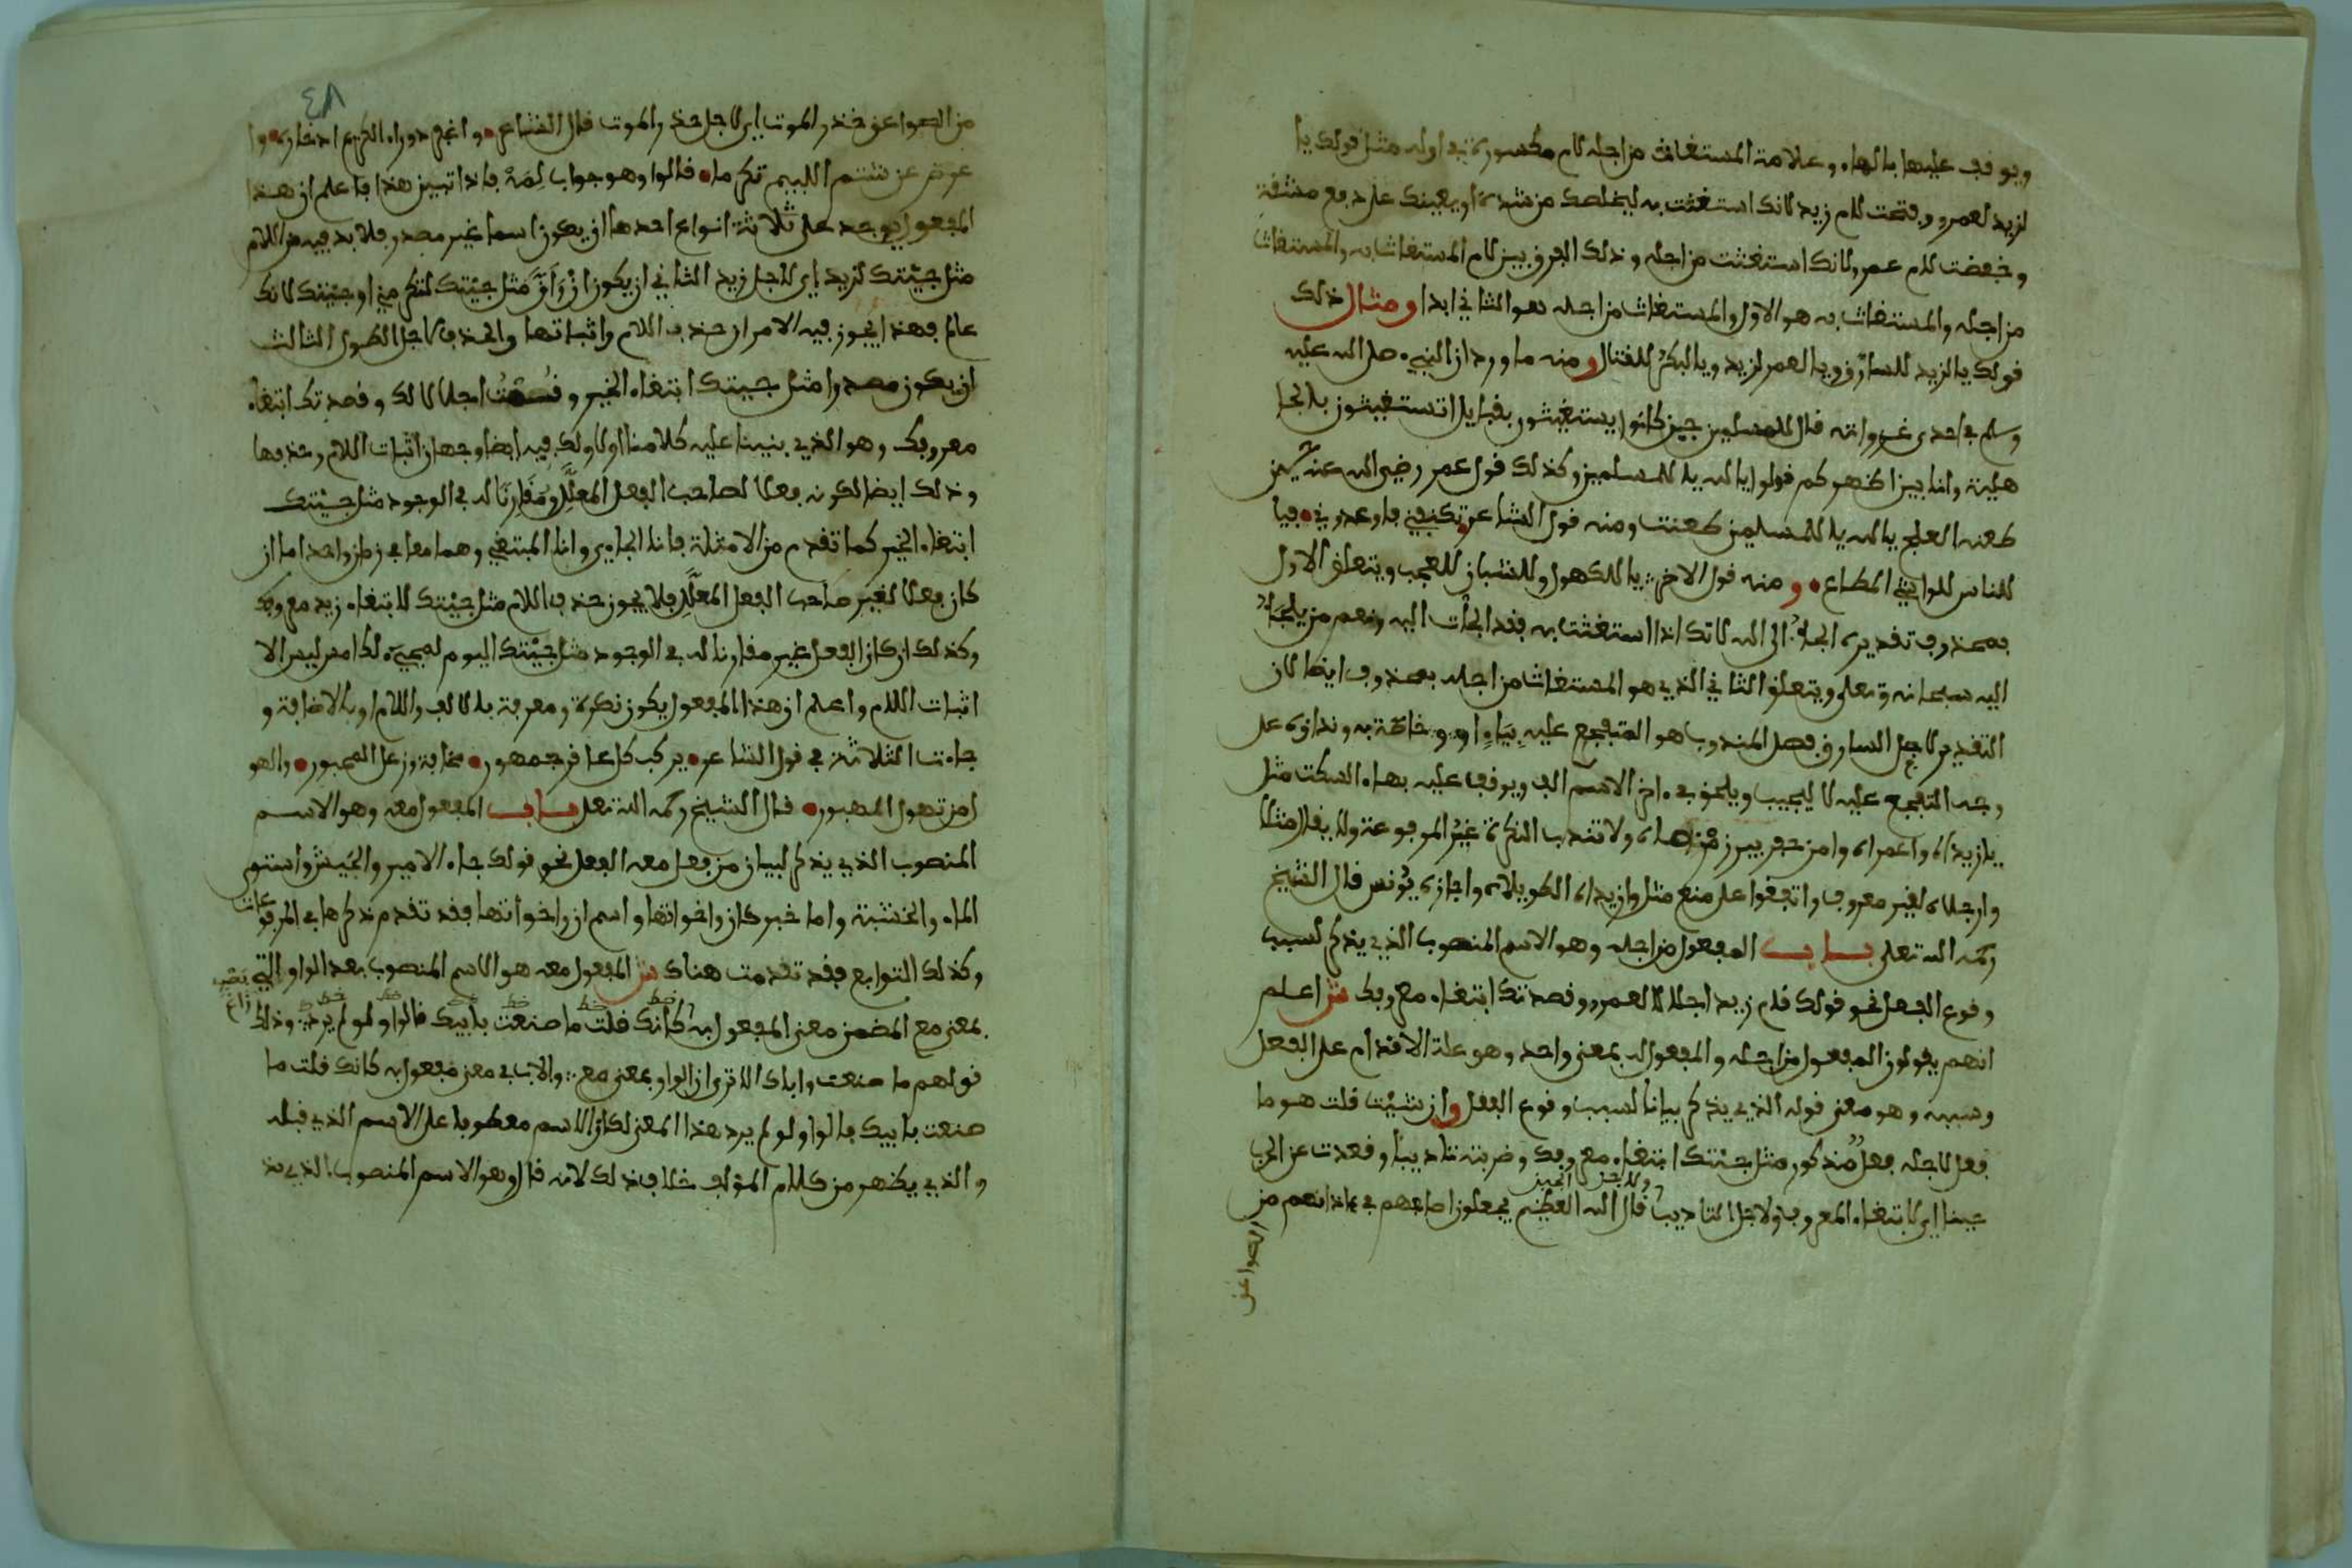 ويوقف عليها بالهاء وعلامة المستغاث من اجله لام مكسورة في اوله مثل قولك يا
لزيد لعمرو وفتحت لام زيد لانك استغثت به ليخلصك من شدة او يعينك على دفع مشقة
وخفضت لام عمرو لانك استغثت من اجله وذلك الفرق بين لام المستغاث به والمستغاث
من اجله والمستغاث به هو الاول والمستغاث من اجله هو الثاني ابدا ومثال ذلك
قولك يا لزيد للسارق ويا لعمر لزيد ويا لبكر للقتال ومنه ما ورد ان النبي صلى الله عليه
وسلم في احدى غزواته قال للمسلمين حين كانوا يستغيثون بقبايل اتستغيثون بالجا
هلية وانا بين اظهركم قولوا يا لله يا للمسلمين وكذلك قول عمر رضي الله عنه حين
طعنه العلج يا لله يا للمسلمين طعنت ومنه قول الشاعر تكنفني الوشاة فازعجوني فيا
للناس للواشي المطاع ومنه قول الاخر يا للكهول وللشبان للعجب ويتعلق الاول
بمحذوف تقديره الجأ الى الله لانك اذا استغثت به فقد الجأت اليه ونعم من يلجأ
اليه سبحانه وتعلى ويتعلق الثاني الذي هو المستغاث من اجله بمحذوف ايضا لان
التقدير لاجل السارق فصل المندوب هو المتفجع عليه بياء او وو خاصة به ونداؤه على
وجه التفجع عليه لا ليجيب ويلحق في ءاخر الاسم الف ويوقف عليه بهاء السكت مثل
يا زيداه واعمراه وامن حفر بير زمزماه ولا تندب النكرة غير المرفوعة ولا يقال مثلا
وارجلاه لغير معروف واتفقوا على منع مثل وازيداه الطويلاه واجازه يونس قال الشيخ
رحمه الله تعلى بــاب المفعول من اجله وهو الاسم المنصوب الذي يذكر لسبب
وقوع الفعل نحو قولك قام زيد اجلالا لعمرو وقصدتك ابتغاء معروفك ش اعلم
انهم يقولون المفعول من اجله والمفعول له بمعنى واحد وهو علة الاقدام على الفعل
وسببه وهو معنى قوله الذي يذكر بيانا لسبب وقوع الفعل وان شئت قلت هو ما
فعل لاجله فعل مذكور مثل جئتك ابتغاء معروفك وضربته تاديبا وقعدت عن الحرب
جبنا اي لابتغاء المعروف ولاجل التاديب ولاجل الجبن قال الله العظيم يجعلون اصابعهم في ءاذانهم من
الصواعق
٤٨
من الصواعق حذر الموت اي لاجل حذر الموت قال الشاعر واغفر عوراء الكريم ادخاره وا
عرض عن شتم اللييم تكرما قالوا وهو جواب لمه فاذا تبين هذا فاعلم ان هذا
المفعول يوجد على ثلاثة انواع احدها ان يكون اسما غير مصدر فلا بد فيه من اللام
مثل جيتك لزيد اي لاجل زيد الثاني ان يكون ان وأن مثل جيتك لتكرمني او جيتك لانك
عالم فهذا يجوز فيه الامران حذف اللام واثباتها والحذف لاجل الطول الثالث
ان يكون مصدرا مثل جيتك ابتغاء الخير وقمت اجلالا لك وقصدتك ابتغاء
معروفك وهو الذي بنينا عليه كلامنا اولا ولك فيه ايضا وجهان اثبات اللام وحذفها
وذلك ايضا لكونه فعلا لصاحب الفعل المعلل ومقارنا له في الوجود مثل جيتك
ابتغاء الخير كما تقدم من الامثلة فانا الجاءي وانا المبتغي وهما معا في زمان واحد اما ان
كان فعلا لغير صاحب الفعل المعلل فلا يجوز حذف اللام مثل جيتك لابتغاء زيد معروفك
وكذلك ان كان الفعل غير مقارنا له في الوجود مثل جيتك اليوم لمجيءك امس ليس الا
اثبات اللام واعلم ان هذا المفعول يكون نكرة ومعرفة بالالف واللام او بالاضافة و
جاءت الثلاثة في قول الشاعر يركب كل عاقر جمهور مخافة وزعل المحبور والهو
ل من تهول الهبور قال الشيخ رحمه الله تعلى بــاب المفعول معه وهو الاسم
المنصوب الذي يذكر لبيان من فعل معه الفعل نحو قولك جاء الامير والجيش واستوى
الماء والخشبة واما خبر كان واخواتها واسم ان واخواتها فقد تقدم ذكرها في المرفوعات
وكذلك التوابع فقد تقدمت هناك ش المفعول معه هو الاسم المنصوب بعد الواو التي
بمعنى مع المضمن معنى المفعول به كانك قلت ما صنعت بابيك قالوا ولو لم يرد وذلك
قولهم ما صنعت واباك الا ترى ان الواو بمعنى مع والاب في معنى مفعول به كانك قلت ما
صنعت بابيك قالوا ولو لم يرد هذا المعنى لكان الاسم معطوفا على الاسم الذي قبله
والذي يظهر من كلام المؤلف خلاف ذلك لانه قال وهو الاسم المنصوب الذي يذ